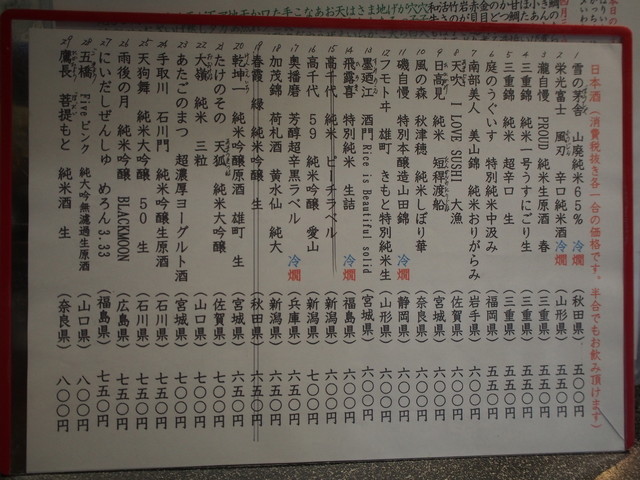 日本酒（消費税抜き各一合の価格です。半合でもお飲み頂けます）
1 雪の茅舎 山廃純米65% 冷 燗 （秋田県） 五〇〇円
2 栄光冨士 風刃 辛口純米酒 冷 燗 （山形県） 五〇〇円
3 瀧自慢 PROUD 純米生原酒 春 （三重県） 五五〇円
4 三重錦 純米一号うすにごり生 （三重県） 五五〇円
5 三重錦 純米 超辛口 生 （三重県） 五五〇円
6 庭のうぐいす 特別純米中汲み （福岡県） 五五〇円
7 南部美人 美山錦 純米おりがらみ （岩手県） 六〇〇円
8 天吹 I LOVE SUSHI 大漁 （佐賀県） 六〇〇円
9 日高見 純米 短稈渡船 （宮城県） 六〇〇円
10 風の森 秋津穂 純米しぼり華 （奈良県） 六〇〇円
11 磯自慢 特別本醸造山田錦 冷 燗 （静岡県） 六〇〇円
12 フモトヰ 雄町 きもと特別純米生 （山形県） 六〇〇円
13 墨廼江 酒門 Rice is Beautiful solid （宮城県） 六〇〇円
14 飛露喜 特別純米 生詰 冷 燗 （福島県） 六〇〇円
15 高千代 純米 ピーチラベル （新潟県） 六〇〇円
16 高千代 59 純米吟醸 愛山 （新潟県） 七〇〇円
17 奥播磨 芳醇超辛黒ラベル 冷 燗 （兵庫県） 六五〇円
18 加茂錦 荷札酒 黄水仙 純大 （新潟県） 六五〇円
19 春霞 緑 純米吟醸 生 （秋田県） 六五〇円
20 乾坤一 純米吟醸原酒 雄町 生 （宮城県） 六五〇円
21 たけのその 天狐 純米大吟醸 （佐賀県） 七〇〇円
22 大嶺 純米 三粒 （山口県） 七〇〇円
23 あたごのまつ 超濃厚ヨーグルト酒 （宮城県） 七〇〇円
24 手取川 石川門 純米吟醸生原酒 （石川県） 七五〇円
25 天狗舞 純米大吟醸 50 生 （石川県） 七五〇円
26 雨後の月 純米吟醸 BLACKMOON （広島県） 七五〇円
27 にいだしぜんしゅ めろん3.33 （福島県） 七五〇円
28 五橋 Fiveピンク 純大吟無濾過生原酒 （山口県） 八〇〇円
29 鷹長 菩提もと 純米酒 生 （奈良県） 八〇〇円